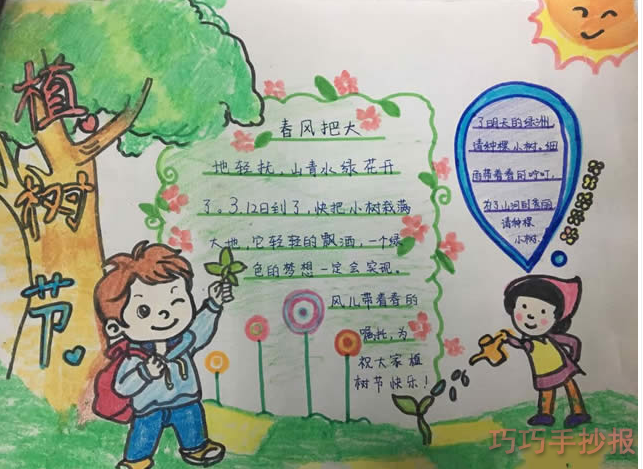 植树节
春风把大
地轻抚，山青水绿花开
了。3.12日到了，快把小树栽满
大地，它轻轻的飘洒，一个绿
色的梦想一定会实现。
风儿带着春的
嘱托，为
祝大家植
树节快乐！
了明天的绿洲，
请种棵小树。细
雨带着春的叮咛，
为了山河的秀丽
请种棵
小树.
巧巧手抄报